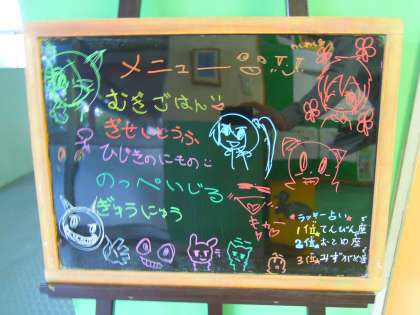 メニュー
むぎごはん
ぎせいどうふ
ひじきのにもの
のっぺいじる
ぎゅうにゅう
キャー
ラッキー占い
1位 てんびん座
2位 おとめ座
3位 みずがめ座